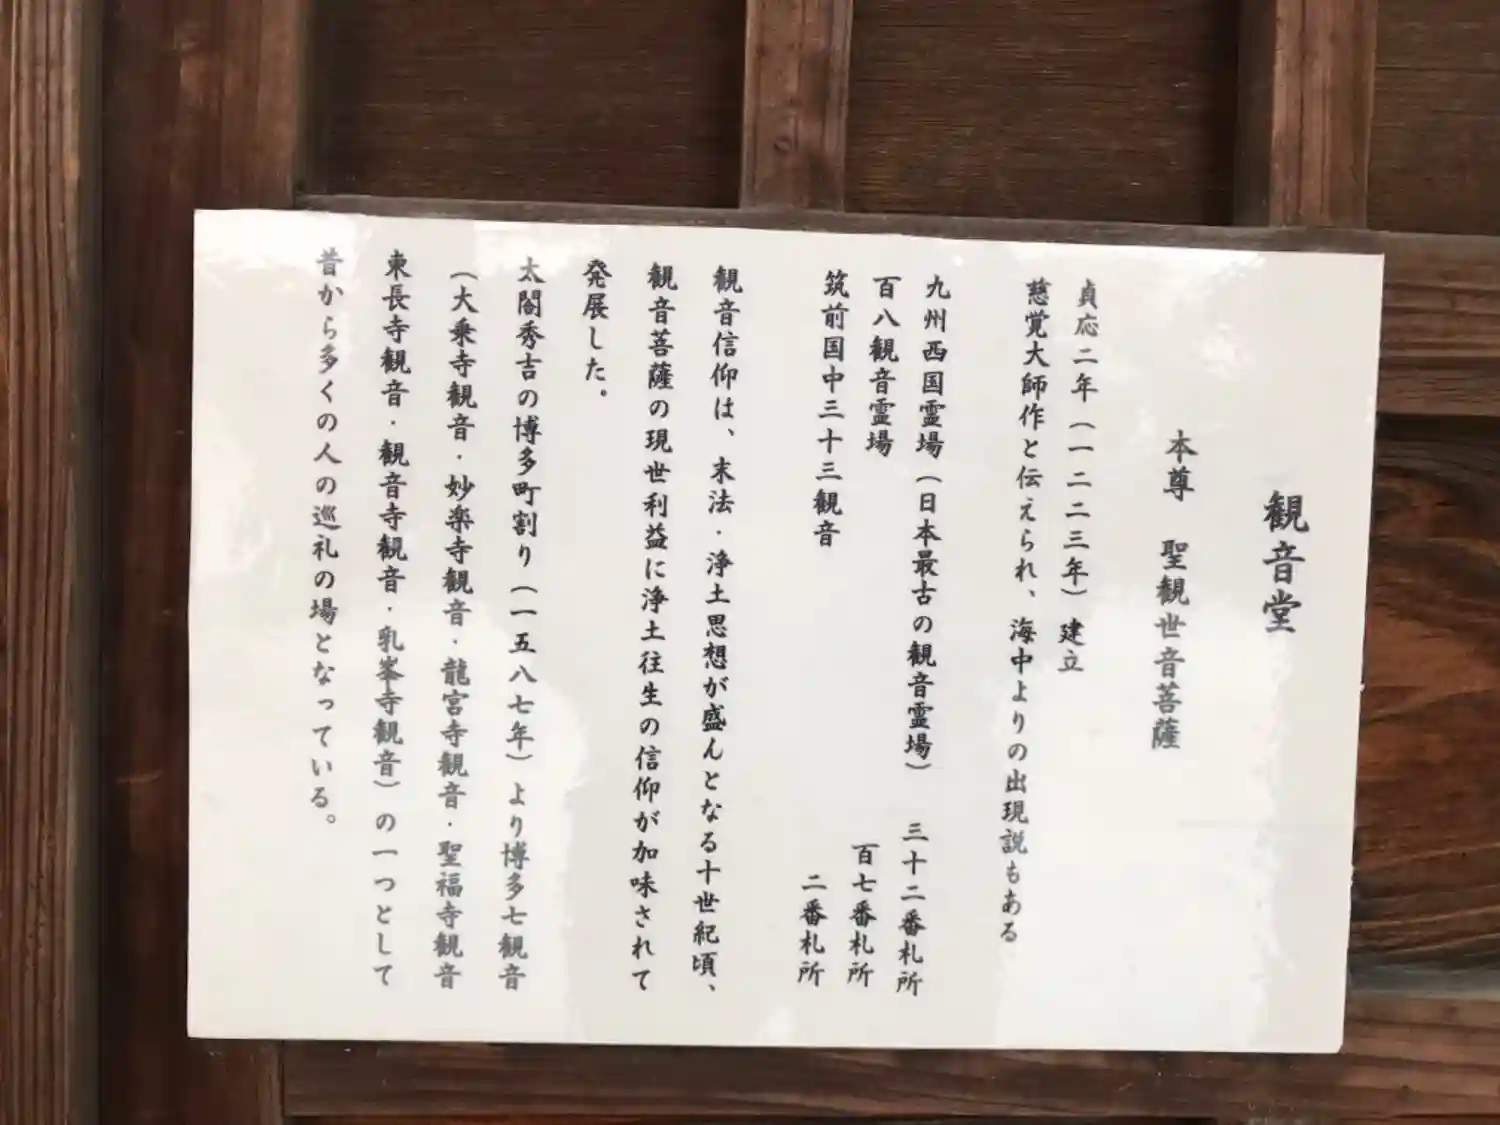 観音堂
本尊　聖観世音菩薩
貞応二年（一二二三年）建立
慈覚大師作と伝えられ、海中よりの出現説もある
九州西国霊場（日本最古の観音霊場）　三十二番札所
百八観音霊場　百七番札所
筑前国中三十三観音　二番札所
観音信仰は、末法・浄土思想が盛んとなる十世紀頃、
観音菩薩の現世利益に浄土往生の信仰が加味されて
発展した。
太閤秀吉の博多町割り（一五八七年）より博多七観音
（大乗寺観音・妙楽寺観音・龍宮寺観音・聖福寺観音
東長寺観音・観音寺観音・乳峯寺観音）の一つとして
昔から多くの人の巡礼の場となっている。